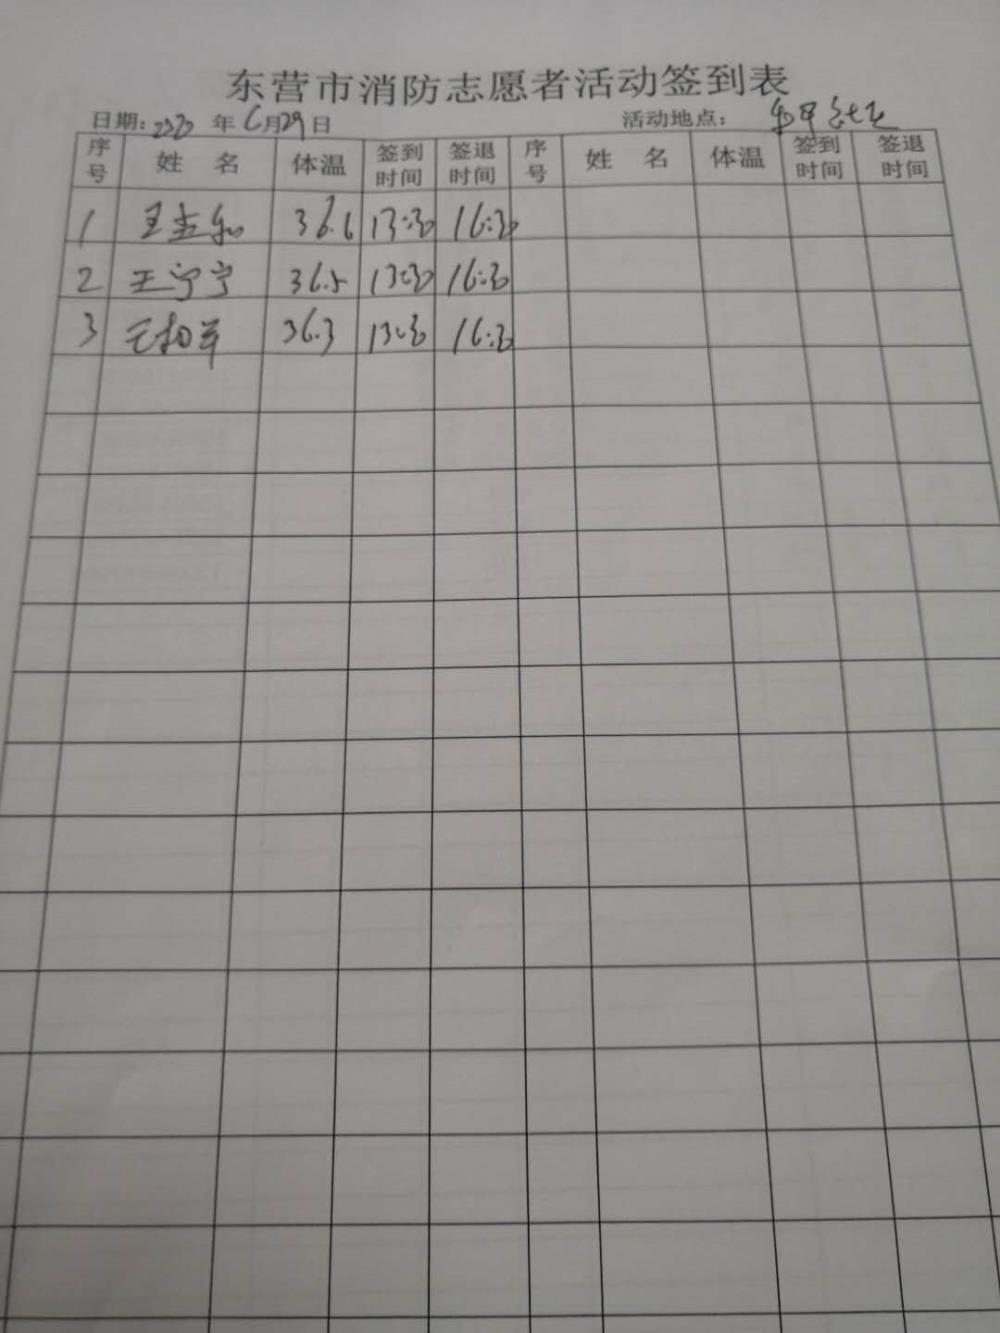 东营市消防志愿者活动签到表
日期: 2020 年 6月29日 活动地点:
序号 姓 名 体温 签到时间 签退时间 序号 姓 名 体温 签到时间 签退时间
1 王 36.6 13:30 16:30
2 王宁宁 36.5 13:30 16:30
3 36.3 13:30 16:30